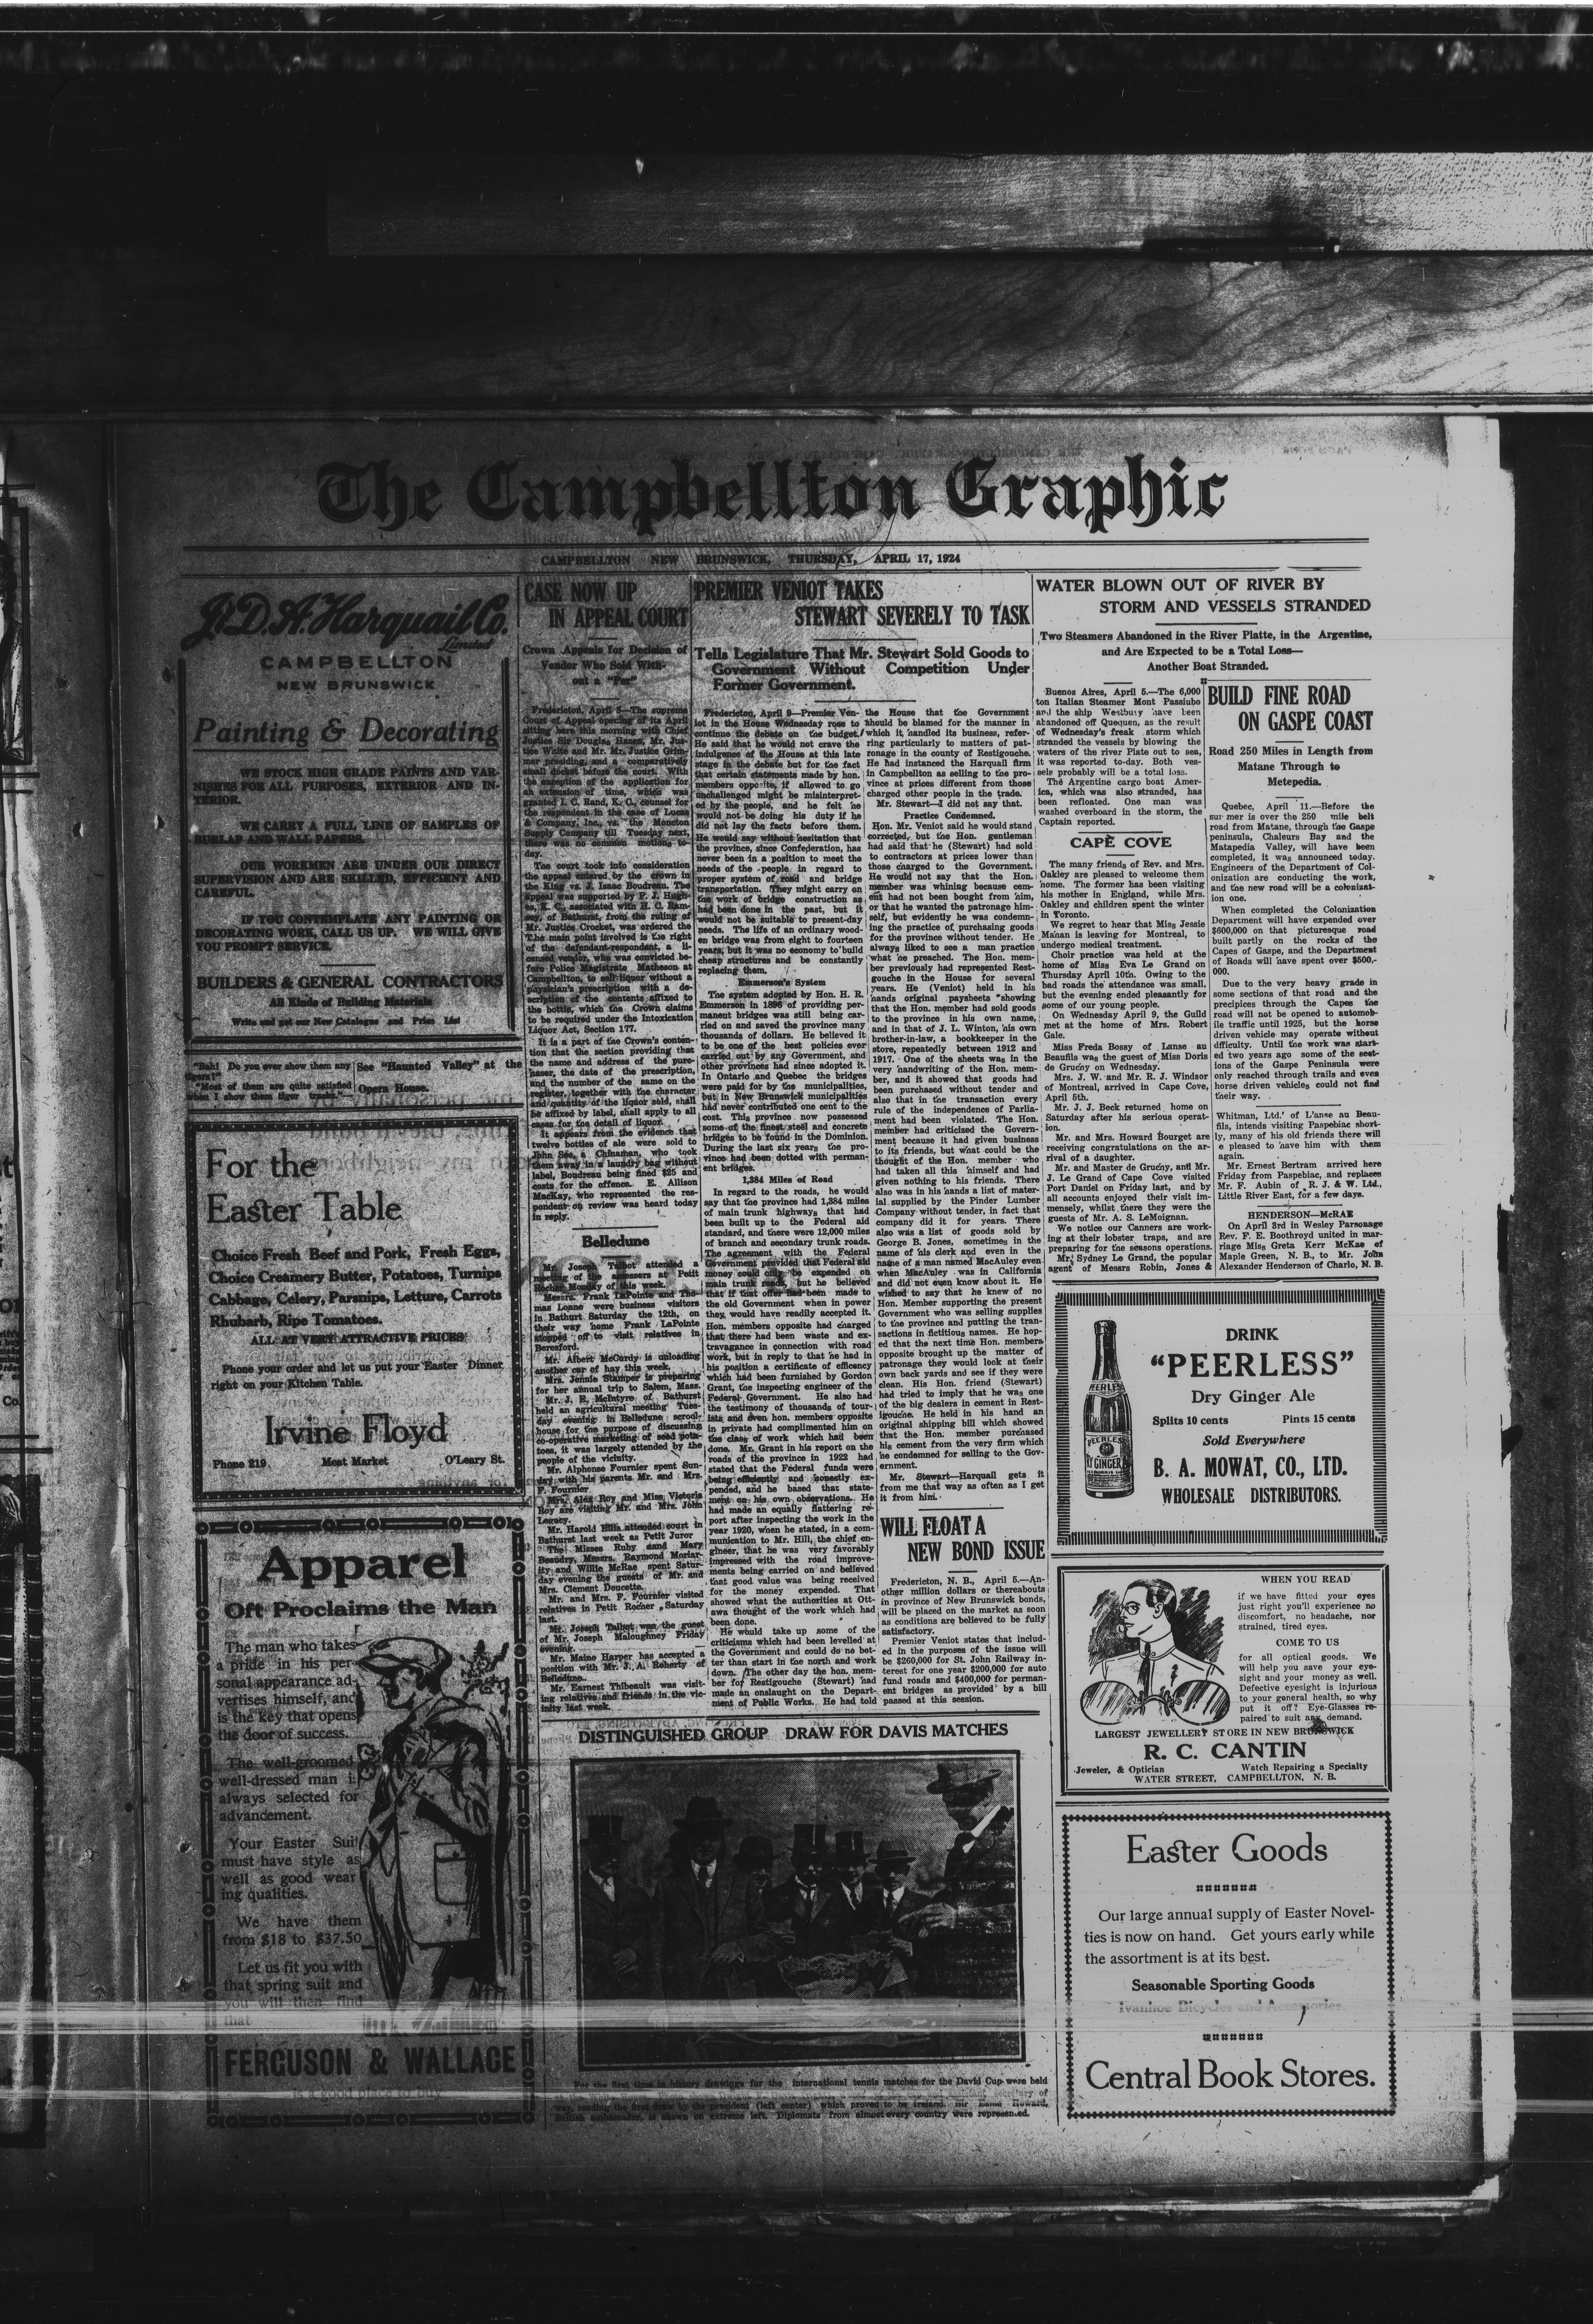 The Campbellton Graphic
CAMPBELLTON NEW BRUNSWICK, THURSDAY, APRIL 17, 1924
J. & D. A. Harquail Co.
Limited
CAMPBELLTON
NEW BRUNSWICK
Painting & Decorating
WE STOCK HIGH GRADE PAINTS AND VAR-
NISHES FOR ALL PURPOSES, EXTERIOR AND IN-
TERIOR.
WE CARRY A FULL LINE OF SAMPLES OF
BURLAP AND WALL PAPERS.
OUR WORKMEN ARE UNDER OUR DIRECT
SUPERVISION AND ARE SKILLED, EFFICIENT AND
CAREFUL.
IF YOU CONTEMPLATE ANY PAINTING OR
DECORATING WORK, CALL US UP. WE WILL GIVE
YOU PROMPT SERVICE.
BUILDERS & GENERAL CONTRACTORS
All Kinds of Building Materials
Write and get our New Catalogue and Price List
"Bah! Do you ever show them any
tigers?"
"Most of them are quite satisfied
when I show them tiger tracks."
See "Haunted Valley" at the
Opera House.
For the
Easter Table
Choice Fresh Beef and Pork, Fresh Eggs,
Choice Creamery Butter, Potatoes, Turnips
Cabbage, Celery, Parsnips, Letture, Carrots
Rhubarb, Ripe Tomatoes.
ALL AT VERY ATTRACTIVE PRICES
Phone your order and let us put your Easter Dinner
right on your Kitchen Table.
Irvine Floyd
Phone 219 Meat Market O'Leary St.
Apparel
Oft Proclaims the Man
The man who takes
a pride in his per-
sonal appearance ad-
vertises himself, and
is the key that opens
the door of success.
The well-groomed
well-dressed man is
always selected for
advancement.
Your Easter Suit
must have style as
well as good wear
ing qualities.
We have them
from $18 to $37.50
Let us fit you with
that spring suit and
you will then find
that
FERGUSON & WALLACE
is a good place to buy
CASE NOW UP
IN APPEAL COURT
Crown Appeals for Decision of
Vendor Who Sold With-
out a "Per"
Fredericton, April 8—The supreme
Court of Appeal opening of its April
sitting here this morning with Chief
Justice Sir Douglas Hazen, Mr. Jus-
tice White and Mr. Justice Grim-
mer presiding, and a comparatively
small docket before the court. With
the exception of the application for
an extension of time, which was
granted I. C. Rand, K. C., counsel for
the respondent in the case of Lucas
& Company, Inc., vs. the Moncton
Supply Company till Tuesday next,
there was no common motions to-
day.
The court took into consideration
the appeal entered by the crown in
the King vs. J. Isaac Boudreau. The
appeal was supported by P. J. Hugh-
es, K. C., associated with H. C. Ram-
say, of Bathurst, from the ruling of
Mr. Justice Crocket, was ordered the
The main point involved is the right
of the defendant-respondent, a li-
censed vendor, who was convicted be-
fore Police Magistrate Matheson at
Campbellton, to sell liquor without a
physician's prescription with a de-
scription of the contents affixed to
the bottle, which the Crown claims
to be required under the Intoxication
Liquor Act, Section 177.
It is a part of the Crown's conten-
tion that the section providing that
the name and address of the pure-
haser, the date of the prescription,
and the number of the same on the
register, together with the character
and quantity of the liquor sold, shall
be affixed by label, shall apply to all
cases for the detail of liquor.
It appears from the evidence that
twelve bottles of ale were sold to
John See, a Chinaman, who took
them away in a laundry bag without
label, Boudreau being fined $25 and
costs for the offence. E. Allison
MacKay, who represented the res-
pondent on review was heard today
in reply.
Belledune
Mr. Joseph Talbot attended a
meeting of the assessers at Petit
Rocher Monday of this week.
Messrs. Frank LaPointe and Tho-
mas Loane were business visitors
in Bathurt Saturday the 12th, on
their way home Frank LaPointe
stopped off to visit relatives in
Beresford.
Mr. Albert McCurdy is unloading
another car of hay this week.
Mrs. Jennie Stamper is preparing
for her annual trip to Salem, Mass.
Mr. J. R. McIntyre of Bathurst
held an agricultural meeting Tues-
day evening in Belledune scrool-
house for the purpose of discussing
co-operative marketing of seed pota-
toes, it was largely attended by the
people of the vicinity.
Mr. Alphonse Fournier spent Sun-
day with his parents Mr. and Mrs.
F. Fournier.
Mrs. Alex Roy and Miss Victoria
Roy are visiting Mr. and Mrs. John
Legacy.
Mr. Harold Ellis attended court in
Bathurst last week as Petit Juror
The Misses Ruby and Mary
Beaudry, Messrs. Raymond Moriar-
ity and Willie McRae spent Satur-
day evening the guests of Mr. and
Mrs. Clement Doucette.
Mr. and Mrs. F. Fournier visited
relatives in Petit Rocher Saturday
last.
Mr. Joseph Talbot was the guest
of Mr. Joseph Maloughney Friday
evening.
Mr. Maine Harper has accepted a
position with Mr. J. A. Roherty of
Belledune.
Mr. Earnest Thibeault was visit-
ing relatives and friends in the vic-
inity last week.
PREMIER VENIOT TAKES
STEWART SEVERELY TO TASK
Tells Legislature That Mr. Stewart Sold Goods to
Government Without Competition Under
Former Government.
Fredericton, April 9—Premier Ven-
iot in the House Wednesday rose to
continue the debate on the budget.
He said that he would not crave the
indulgence of the House at this late
stage in the debate but for the fact
that certain statements made by hon.
members opposite, if allowed to go
unchallenged might be misinterpret-
ed by the people, and he felt he
would not be doing his duty if he
did not lay the facts before them.
He would say without hesitation that
the province, since Confederation, has
never been in a position to meet the
needs of the people in regard to
proper system of road and bridge
transportation. They might carry on
the work of bridge construction as
had been done in the past, but it
would not be suitable to present-day
needs. The life of an ordinary wood-
en bridge was from eight to fourteen
years, but it was no economy to build
cheap structures and be constantly
replacing them.
Emmerson's System
The system adopted by Hon. H. R.
Emmerson in 1896 of providing per-
manent bridges was still being car-
ried on and saved the province many
thousands of dollars. He believed it
to be one of the best policies ever
carried out by any Government, and
other provinces had since adopted it.
In Ontario and Quebec the bridges
were paid for by the municipalities,
but in New Brunswick municipalities
had never contributed one cent to the
cost. This province now possessed
some of the finest steel and concrete
bridges to be found in the Dominion.
During the last six years the pro-
vince had been dotted with perman-
ent bridges.
1,384 Miles of Road
In regard to the roads, he would
say that the province had 1,384 miles
of main trunk highways that had
been built up to the Federal aid
standard, and there were 12,000 miles
of branch and secondary trunk roads.
The agreement with the Federal
Government provided that Federal aid
money could only be expended on
main trunk roads, but he believed
that if that offer had been made to
the old Government when in power
they would have readily accepted it.
Hon. members opposite had charged
that there had been waste and ex-
travagance in connection with road
work, but in reply to that he had in
his position a certificate of efficency
which had been furnished by Gordon
Grant, the inspecting engineer of the
Federal Government. He also had
the testimony of thousands of tour-
ists and even hon. members opposite
in private had complimented him on
the class of work which had been
done. Mr. Grant in his report on the
roads of the province in 1922 had
stated that the Federal funds were
being efficiently and honestly ex-
pended, and he based that state-
ment on his own observations. He
had made an equally flattering re-
port after inspecting the work in the
year 1920, when he stated, in a com-
munication to Mr. Hill, the chief en-
gineer, that he was very favorably
impressed with the road improve-
ments being carried on and believed
that good value was being received
for the money expended. That
showed what the authorities at Ott-
awa thought of the work which had
been done.
He would take up some of the
criticisms which had been levelled at
the Government and could do no bet-
ter than start in the north and work
down. The other day the hon. mem-
ber for Restigouche (Stewart) had
made an onslaught on the Depart-
ment of Public Works. He had told
the House that the Government
should be blamed for the manner in
which it handled its business, refer-
ring particularly to matters of pat-
ronage in the county of Restigouche.
He had instanced the Harquail firm
in Campbellton as selling to the pro-
vince at prices different from those
charged other people in the trade.
Mr. Stewart—I did not say that.
Practice Condemned.
Hon. Mr. Veniot said he would stand
corrected, but the Hon. gentleman
had said that he (Stewart) had sold
to contractors at prices lower than
those charged to the Government.
He would not say that the Hon.
member was whining because cem-
ent had not been bought from him,
or that he wanted the patronage him-
self, but evidently he was condemn-
ing the practice of purchasing goods
for the province without tender. He
always liked to see a man practice
what he preached. The Hon. mem-
ber previously had represented Rest-
gouche in the House for several
years. He (Veniot) held in his
hands original paysheets "showing
that the Hon. member had sold goods
to the province in his own name,
and in that of J. L. Winton, his own
brother-in-law, a bookkeeper in the
store, repeatedly between 1912 and
1917. One of the sheets was in the
very handwriting of the Hon. mem-
ber, and it showed that goods had
been purchased without tender and
also that in the transaction every
rule of the independence of Parlia-
ment had been violated. The Hon.
member had criticized the Govern-
ment because it had given business
to its friends, but what could be the
thought of the Hon. member who
had taken all this himself and had
given nothing to his friends. There
also was in his hands a list of mater-
ial supplied by the Pinder Lumber
Company without tender, in fact that
company did it for years. There
also was a list of goods sold by
George B. Jones, sometimes in the
name of his clerk and even in the
name of a man named MacAuley even
when MacAuley was in California
and did not even know about it. He
wished to say that he knew of no
Hon. Member supporting the present
Government who was selling supplies
to the province and putting the tran-
sactions in fictitious names. He hop-
ed that the next time Hon. members
opposite brought up the matter of
patronage they would look at their
own back yards and see if they were
clean. His Hon. friend (Stewart)
had tried to imply that he was one
of the big dealers in cement in Rest-
igouche. He held in his hand an
original shipping bill which showed
that the Hon. member purchased
his cement from the very firm which
he condemned for selling to the Gov-
ernment.
Mr. Stewart—Harquail gets it
from me that way as often as I get
it from him.
WILL FLOAT A
NEW BOND ISSUE
Fredericton, N. B., April 5.—An-
other million dollars or thereabouts
in province of New Brunswick bonds,
will be placed on the market as soon
as conditions are believed to be fully
satisfactory.
Premier Veniot states that includ-
ed in the purposes of the issue will
be $260,000 for St. John Railway in-
terest for one year $200,000 for auto
fund roads and $400,000 for perman-
ent bridges as provided by a bill
passed at this session.
DISTINGUISHED GROUP DRAW FOR DAVIS MATCHES
For the first time in history drawings for the international tennis matches for the David Cup were held
secretary of
war, reading the first draw by the president (left center) which proved to be Ireland. Sir Esme Howard,
British ambassador, is shown on extreme left. Diplomats from almost every country were represen.ed.
WATER BLOWN OUT OF RIVER BY
STORM AND VESSELS STRANDED
Two Steamers Abandoned in the River Platte, in the Argentine,
and Are Expected to be a Total Loss—
Another Boat Stranded.
Buenos Aires, April 5.—The 6,000
ton Italian Steamer Mont Passiubo
and the ship Westbury have been
abandoned off Quequen, as the result
of Wednesday's freak storm which
stranded the vessels by blowing the
waters of the river Plate out to sea,
it was reported to-day. Both ves-
sels probably will be a total loss.
The Argentine cargo boat Amer-
ica, which was also stranded, has
been refloated. One man was
washed overboard in the storm, the
Captain reported.
CAPE COVE
The many friends of Rev. and Mrs.
Oakley are pleased to welcome them
home. The former has been visiting
his mother in England, while Mrs.
Oakley and children spent the winter
in Toronto.
We regret to hear that Miss Jessie
Mahan is leaving for Montreal, to
undergo medical treatment.
Choir practice was held at the
home of Miss Eva Le Grand on
Thursday April 10th. Owing to the
bad roads the attendance was small,
but the evening ended pleasantly for
some of our young people.
On Wednesday April 9, the Guild
met at the home of Mrs. Robert
Gale.
Miss Freda Bossy of Lanse au
Beaufils was the guest of Miss Doris
de Gruchy on Wednesday.
Mrs. J. W. and Mr. R. J. Windsor
of Montreal, arrived in Cape Cove,
April 5th.
Mr. J. J. Beck returned home on
Saturday after his serious operat-
ion.
Mr. and Mrs. Howard Bourget are
receiving congratulations on the ar-
rival of a daughter.
Mr. and Master de Gruchy, and Mr.
J. Le Grand of Cape Cove visited
Port Daniel on Friday last, and by
all accounts enjoyed their visit im-
mensely, whilst there they were the
guests of Mr. A. S. LeMoignan.
We notice our Canners are work-
ing at their lobster traps, and are
preparing for the seasons operations.
Mr. Sydney Le Grand, the popular
agent of Messrs Robin, Jones &
BUILD FINE ROAD
ON GASPE COAST
Road 250 Miles in Length from
Matane Through to
Metepedia.
Quebec, April 11.—Before the
sur mer is over the 250 mile belt
road from Matane, through the Gaspe
peninsula, Chaleurs Bay and the
Matapedia Valley, will have been
completed, it was announced today.
Engineers of the Department of Col-
onization are conducting the work,
and the new road will be a colonizat-
ion one.
When completed the Colonization
Department will have expended over
$600,000 on that picturesque road
built partly on the rocks of the
Capes of Gaspe, and the Department
of Roads will have spent over $500,-
000.
Due to the very heavy grade in
some sections of that road and the
precipices through the Capes the
road will not be opened to automob-
ile traffic until 1925, but the horse
driven vehicle may operate without
difficulty. Until the work was start-
ed two years ago some of the sect-
ions of the Gaspe Peninsula were
only reached through trails and even
horse driven vehicles could not find
their way.
Whitman, Ltd.' of L'anse au Beau-
fils, intends visiting Paspebiac short-
ly, many of his old friends there will
e pleased to have him with them
again.
Mr. Ernest Bertram arrived here
Friday from Paspebiac, and replaces
Mr. F. Aubin of R. J. & W. Ltd.,
Little River East, for a few days.
HENDERSON—McRAE
On April 3rd in Wesley Parsonage
Rev. F. E. Boothroyd united in mar-
riage Miss Greta Kerr McKae of
Maple Green, N. B., to Mr. John
Alexander Henderson of Charlo, N. B.
PEERLESS
DRY GINGER
DRINK
"PEERLESS"
Dry Ginger Ale
Splits 10 cents Pints 15 cents
Sold Everywhere
B. A. MOWAT, CO., LTD.
WHOLESALE DISTRIBUTORS.
WHEN YOU READ
if we have fitted your eyes
just right you'll experience no
discomfort, no headache, nor
strained, tired eyes.
COME TO US
for all optical goods. We
will help you save your eye-
sight and your money as well.
Defective eyesight is injurious
to your general health, so why
put it off? Eye-Glasses re-
paired to suit any demand.
LARGEST JEWELLERY STORE IN NEW BRUNSWICK
R. C. CANTIN
Jeweler, & Optician Watch Repairing a Specialty
WATER STREET, CAMPBELLTON, N. B.
Easter Goods
Our large annual supply of Easter Novel-
ties is now on hand. Get yours early while
the assortment is at its best.
Seasonable Sporting Goods
Ivanhoe Bicycles and Accessories.
Central Book Stores.